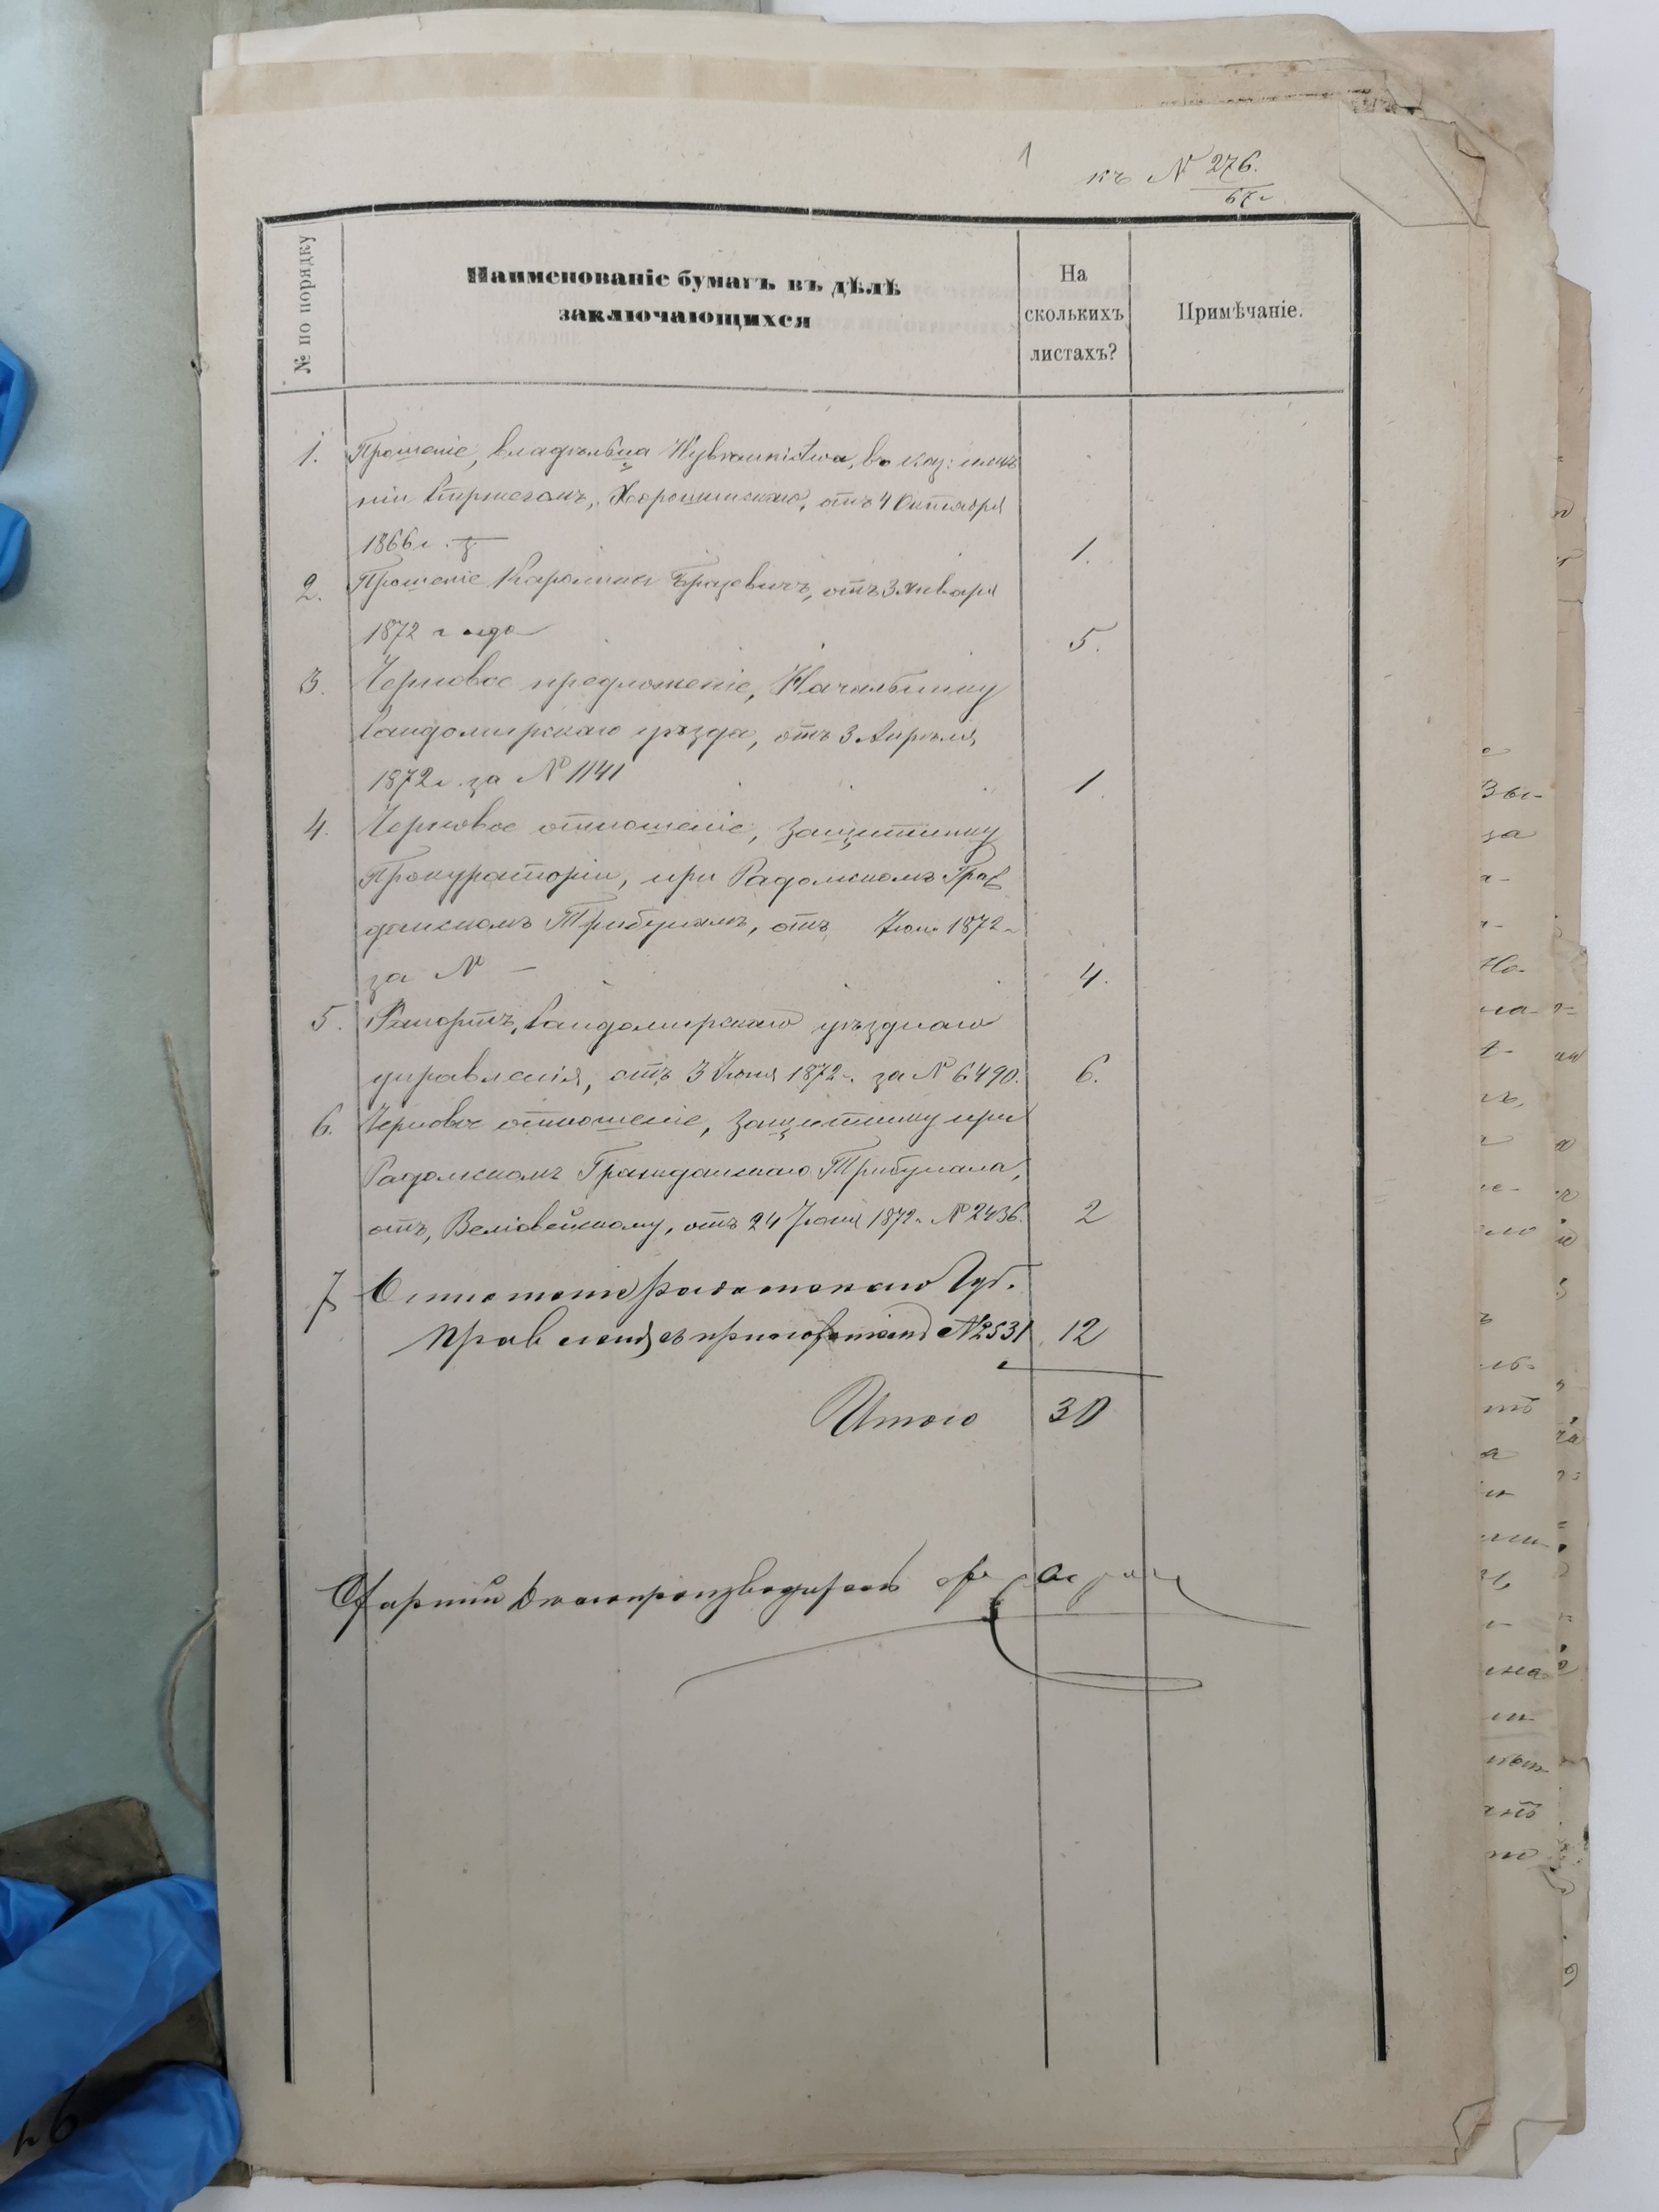 1
къ № 276.
67 г
№ по порядку
Наименованіе бумагъ въ дѣлѣ
заключающихся
На
сколькихъ
листахъ?
Примѣчаніе.
1. Прошеніе, владѣльца
ніи Хорошинскаго, отъ 4 Октября
1866 г. 1.
2. Прошеніе Каролины отъ 3 Января
1872 года 5.
3. Черновое предложеніе, Начальнику
Сандомирскаго уѣзда, отъ 3 Апрѣля
1872 г. за № 1141 1.
4. Черновое отношеніе, Защитнику
Прокураторіи, при Радомскомъ Граж
данскомъ Трибуналѣ, отъ Іюн. 1872 г.
за № — 4.
5. Рапортъ, Сандомирскаго уѣзднаго
управленія, отъ 3 Іюня 1872 г. за № 6490. 6.
6. Черновое отношеніе, Защитнику при
Радомскомъ Гражданскаго Трибунала,
отъ, отъ 24 Іюня 1872 г. № 2436. 2
7 Отношеніе Радомскаго Губ.
Правленія съ приложеніемъ № 2531 12
Итого 30
Старшій Дѣлопроизводитель